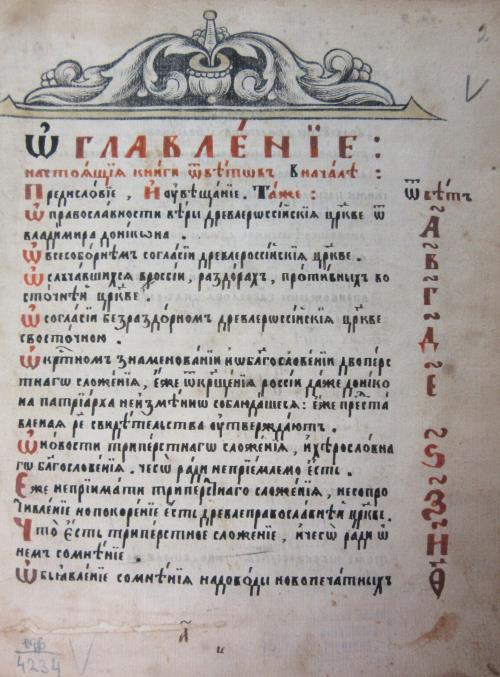 2
Ѡ ГЛАВЛЕ́НЇЕ :
настоѧ́щїѧ кни́ги ѿвѣ́товъ Внача́лѣ :
Предисло́вїе , Иѹвѣща́нїе . Та́же : Ѿвѣ́тъ
Ѡ правосла́вности вѣ́ры древлеро́ссїйскїѧ цр҃кве ѿ
влади́мира дони́кона . А҃
Ѡ всесобо́рнѣмъ согла́сїи древлеросси́йскїѧ цр҃кве . В҃
Ѡ слꙋча́вшихсѧ вроссі́и , раздо́рахъ , проти́вныхъ во
сто́чнѣй цр҃кве . Г҃
Ѡ согла́сїи безраздо́рномъ древлеро́ссїйскїѧ цр҃кве
свосто́чною . Д҃
Ѡ крⷭ҇тномъ знаменова́нїи ѝѡ бл҃гослове́нїи двопе́рс
тнагѡ сложе́нїѧ , є҆́же ѿкрщ҃е́нїѧ россі́и да́же дони́ко
на патрїа́рха неизмѣ́ннѡ соблюда́шесѧ : є҆́же преста́
вленаѧ р҃е свидѣ́тельства ѹ҆твержда́ютъ . Е҃
Ѡ но́вости трипе́рстнагѡ сложе́нїѧ , и҆херосло́вна
гѡ бл҃гослове́нїѧ . чесѡ̀ ра́ди непрїе́млемо є҆́сть . Ѕ҃
Е҆́же неприима́ти трипе́рстнаго сложе́нїѧ , несопро
ти́вленїе нопокоре́нїе є҆́сть древлеправосла́внѣй цр҃кве . З҃
Что̀ є҆́сть трипе́рстное сложе́нїе , и҆чесѡ̀ ра́ди ѡ҆
не́мъ сомнѣ́нїе . И҃
Ѡ бꙗвле́нїе сомнѣ́нїѧ надово́ды новопеча́тныхъ Ѳ҃
а҃
4234